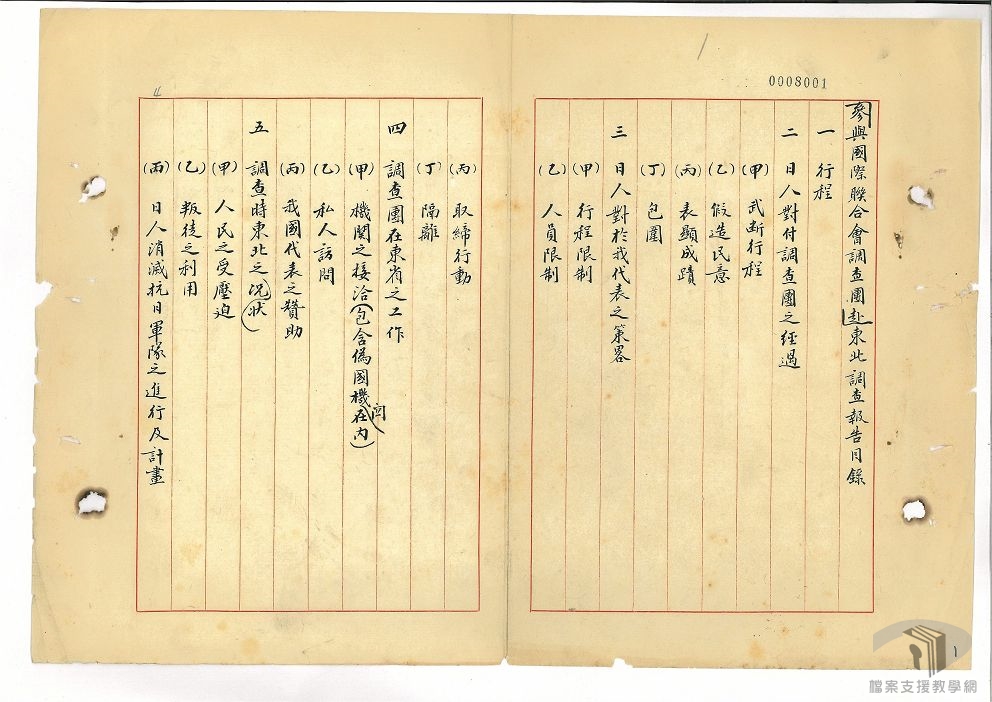 0008001
參與國際聯合會調查團赴東北調查報告目錄
一 行程
二 日人對付調查團之經過
(甲) 武斷行程
(乙) 假造民意
(丙) 表顯成蹟
(丁) 包圍
三 日人對於我代表之策畧
(甲) 行程限制
(乙) 人員限制
(丙) 取締行動
(丁) 隔離
四 調查團在東省之工作
(甲) 機関之接洽(包含偽國機関在內)
(乙) 私人訪問
(丙) 我國代表之贊助
五 調查時東北之況狀
(甲) 人民之受壓迫
(乙) 叛徒之利用
(丙) 日人消滅抗日軍隊之進行及計畫
4
1
檔案支援教學網